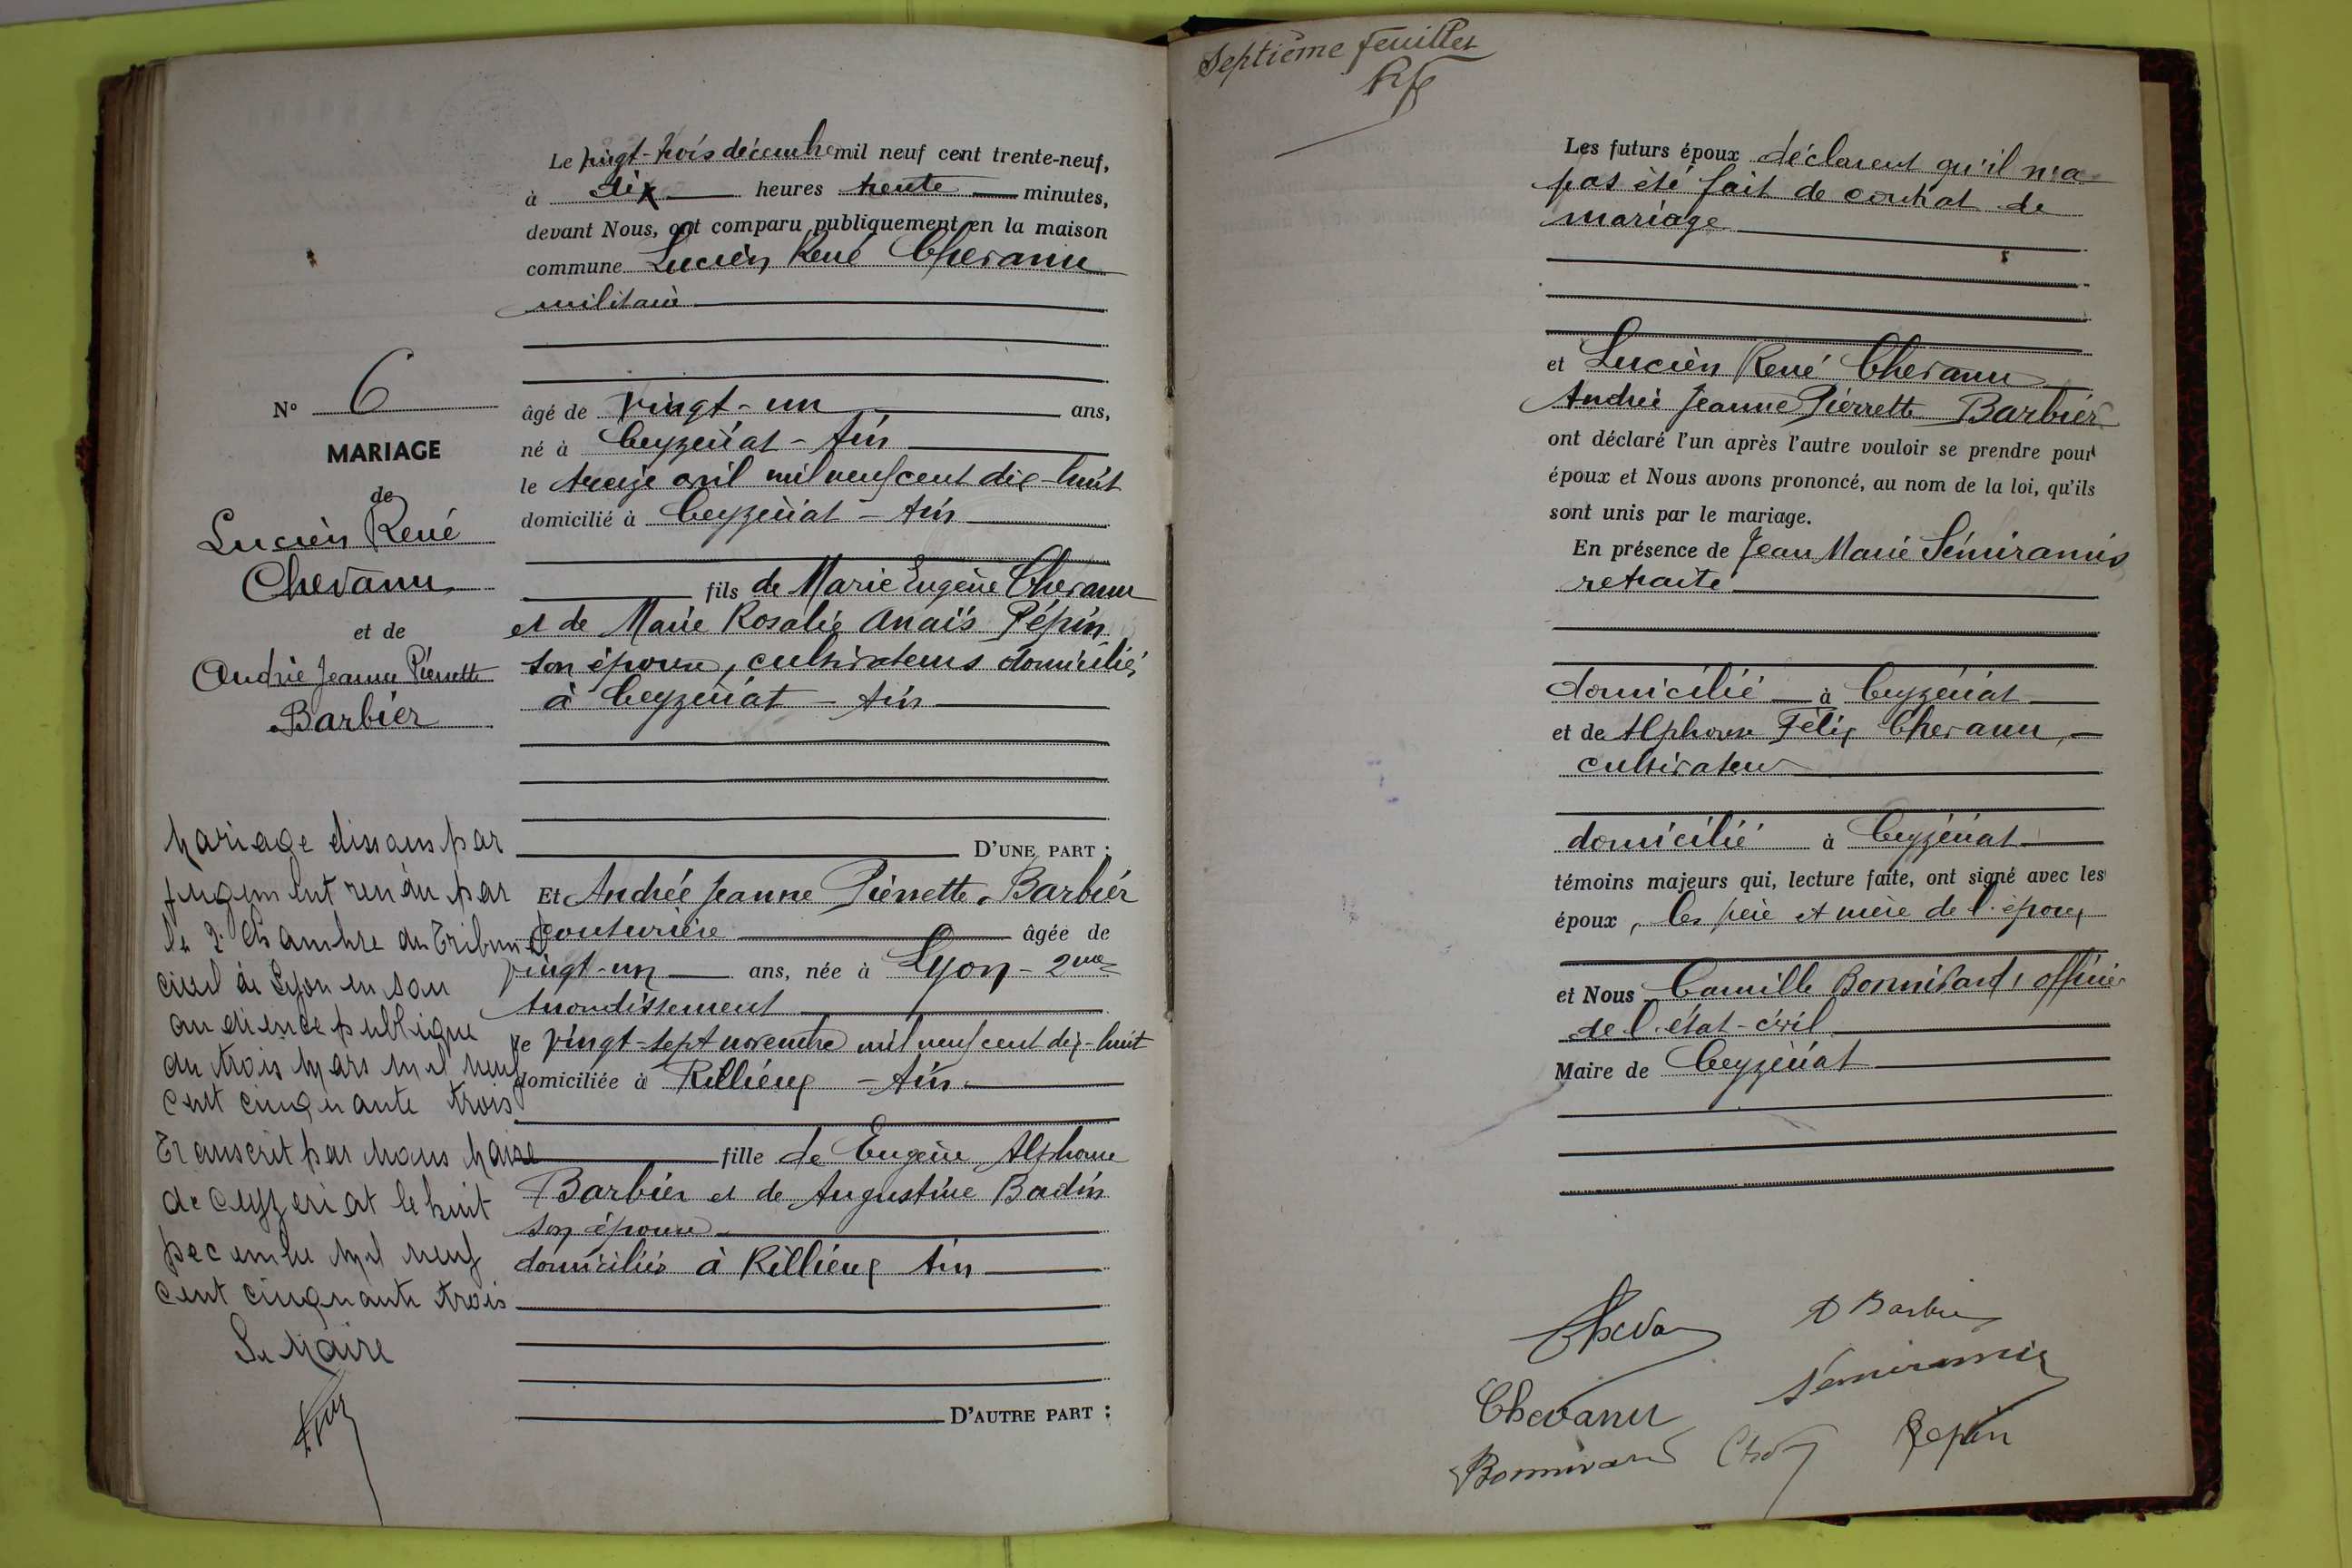 Le vingt-trois décembre mil neuf cent trente-neuf,
à dix heures trente minutes,
devant Nous, ont comparu publiquement en la maison
commune Lucien René Chevanu
militaire
âgé de vingt-un ans,
né à Ceyzériat - Ain
le treize avril mil neuf cent dix-huit
domicilié à Ceyzériat - Ain
fils de Marie Eugène Chevanu
et de Marie Rosalie Anaïs Pépin
son épouse, cultivateurs domiciliés
à Ceyzériat - Ain
D'UNE PART ;
Et Andrée Jeanne Pierrette Barbier
couturière âgée de
vingt-un ans, née à Lyon - 2me
Arrondissement
le vingt-sept novembre mil neuf cent dix-huit
domiciliée à Rillieux - Ain
fille de Eugène Alphonse
Barbier et de Augustine Badin
son épouse
domiciliés à Rillieux Ain
D'AUTRE PART ;
N° 6
MARIAGE
de
Lucien René
Chevanu
et de
Andrée Jeanne Pierrette
Barbier
Mariage dissous par
jugement rendu par
la 2e Chambre du Tribunal
civil de Lyon en son
audience publique
du trois Mars mil neuf
cent cinquante trois
Transcrit par nous Maire
de Ceyzeriat le huit
Decembre mil neuf
cent cinquante trois
Le Maire
Septième feuillet
Les futurs époux déclarent qu'il n'a
pas été fait de contrat de
mariage
et Lucien René Chevanu
Andrée Jeanne Pierrette Barbier
ont déclaré l'un après l'autre vouloir se prendre pour
époux et Nous avons prononcé, au nom de la loi, qu'ils
sont unis par le mariage.
En présence de Jean Marie Sémiramis
retraité
domicilié à Ceyzériat
et de Alphonse Félix Chevanu,
cultivateur
domicilié à Ceyzériat
témoins majeurs qui, lecture faite, ont signé avec les
époux, les père et mère de l'époux
et Nous Camille Bonnivard, officier
de l'état-civil
Maire de Ceyzériat
A Barbier
Sémiramis
Chevanu
Pepin
Bonnivard